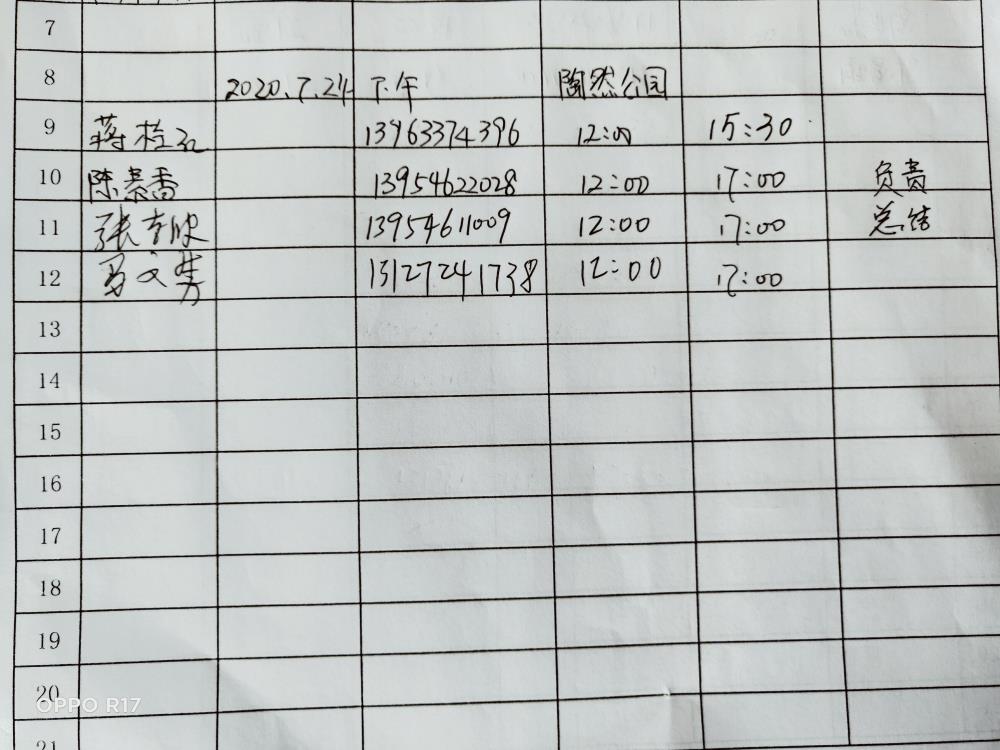 7
8 2020.7.24 下午 陶然公园
9 蒋桂红 13963374396 12:00 15:30
10 陈慕香 13954622028 12:00 17:00 负责
11 张吉欣 13954611009 12:00 17:00 总结
12 文芳 13127241738 12:00 17:00
13
14
15
16
17
18
19
20
OPPO R17
21